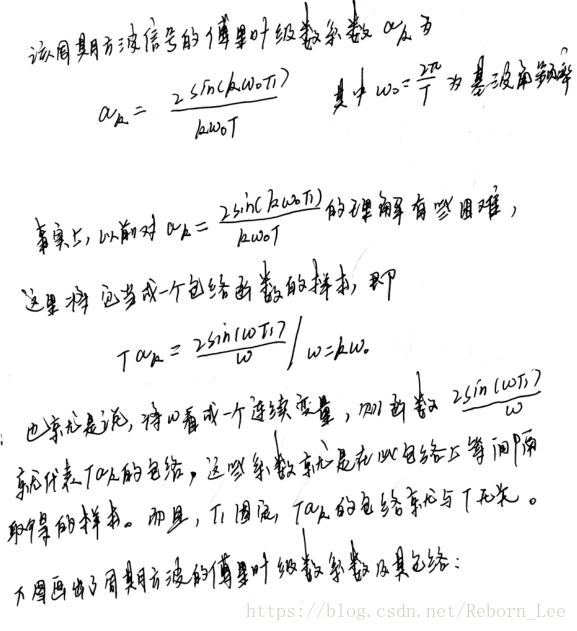 该周期方波信号的傅里叶级数系数 aₖ 为
aₖ = 2sin(kω₀T₁) / kω₀T 其中 ω₀ = 2π/T 为基波角频率
事实上,以前对 aₖ = 2sin(kω₀T₁) / kω₀T 的理解有些困难,
这里将它当成一个包络函数的样本,即
Taₖ = 2sin(ωT₁) / ω | ω=kω₀
也就是说,将ω看成一个连续变量,则函数 2sin(ωT₁) / ω
就代表Taₖ的包络,这些系数就是在此包络上等间隔
取得的样本。而且,T₁固定,Taₖ的包络就与T无关。
下图画出了周期方波的傅里叶级数系数及其包络:
https://blog.csdn.net/Reborn_Lee